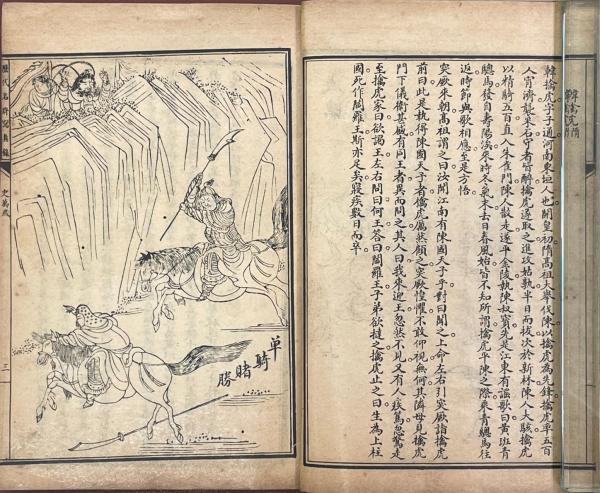 韓擒虎 隋
韓擒虎字子通河南東垣人也開皇初隋高祖大舉伐陳以擒虎為先鋒擒虎率五百
人宵濟襲采石守者皆醉擒虎遂取之進攻姑孰半日而拔次於新林陳人大駭擒虎
以精騎五百直入朱雀門陳人散走遂平金陵執陳叔寶先是江東有謡歌曰黃班青
驄馬發自壽陽涘來時冬氣末去日春風始皆不知所謂擒虎平陳之際乘青驄馬往
返時節與歌相應至是方悟
突厥來朝高祖謂之曰汝聞江南有陳國天子乎對曰聞之上命左右引突厥詣擒虎
前曰此是執得陳國天子者擒虎厲然顧之突厥惶懼不敢仰視無何其隣母見擒虎
門下儀衛甚盛有同王者異而問之其人曰我來迎王忽然不見又有人疾篤忽驚走
至擒虎家曰欲謁王左右問曰何王答曰閻羅王子弟欲撻之擒虎止之曰生為上柱
國死作閻羅王斯亦足矣寢疾數日而卒
單騎賭勝
歷代名將
史萬歲
三